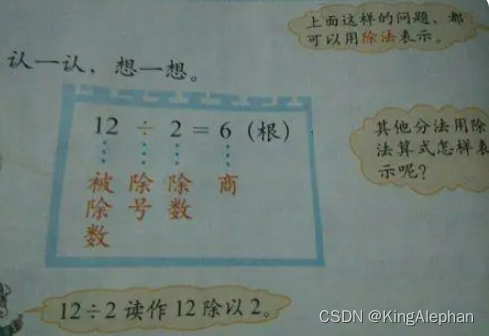 上面这样的问题，都
可以用除法表示。
认一认，想一想。
12 ÷ 2 = 6（根）
被除数 除号 除数 商
其他分法用除
法算式怎样表
示呢？
12÷2 读作 12 除以 2。
CSDN @KingAlephan